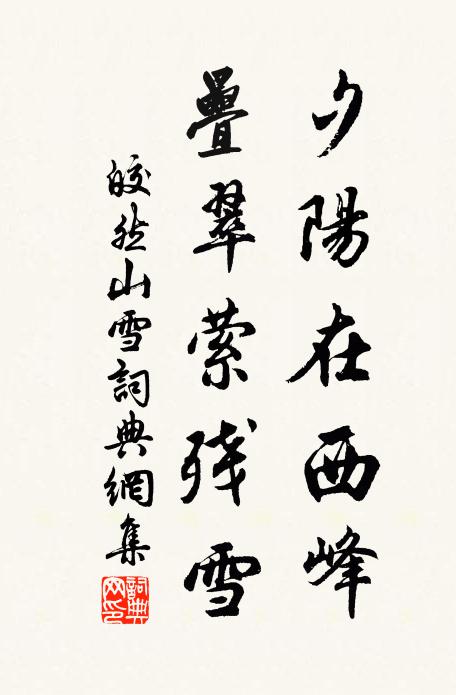 夕陽在西峰
疊翠縈残雪
皎然山雪詞典網集
詞典网印